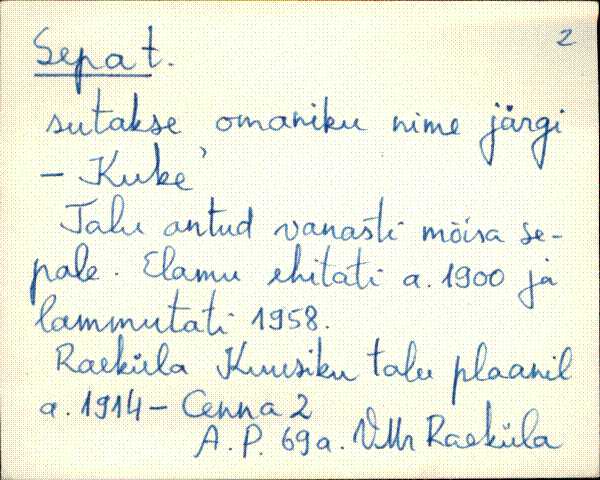 Sepa t. 2
sutakse omaniku nime järgi
- Kuke'
Talu antud vanasti mõisa se-
pale. Elamu ehitati a. 1900 ja
lammutati 1958.
Raeküla Kuusiku talu plaanil
a. 1914 - Cenna 2
A. P. 69 a. VMr Raeküla